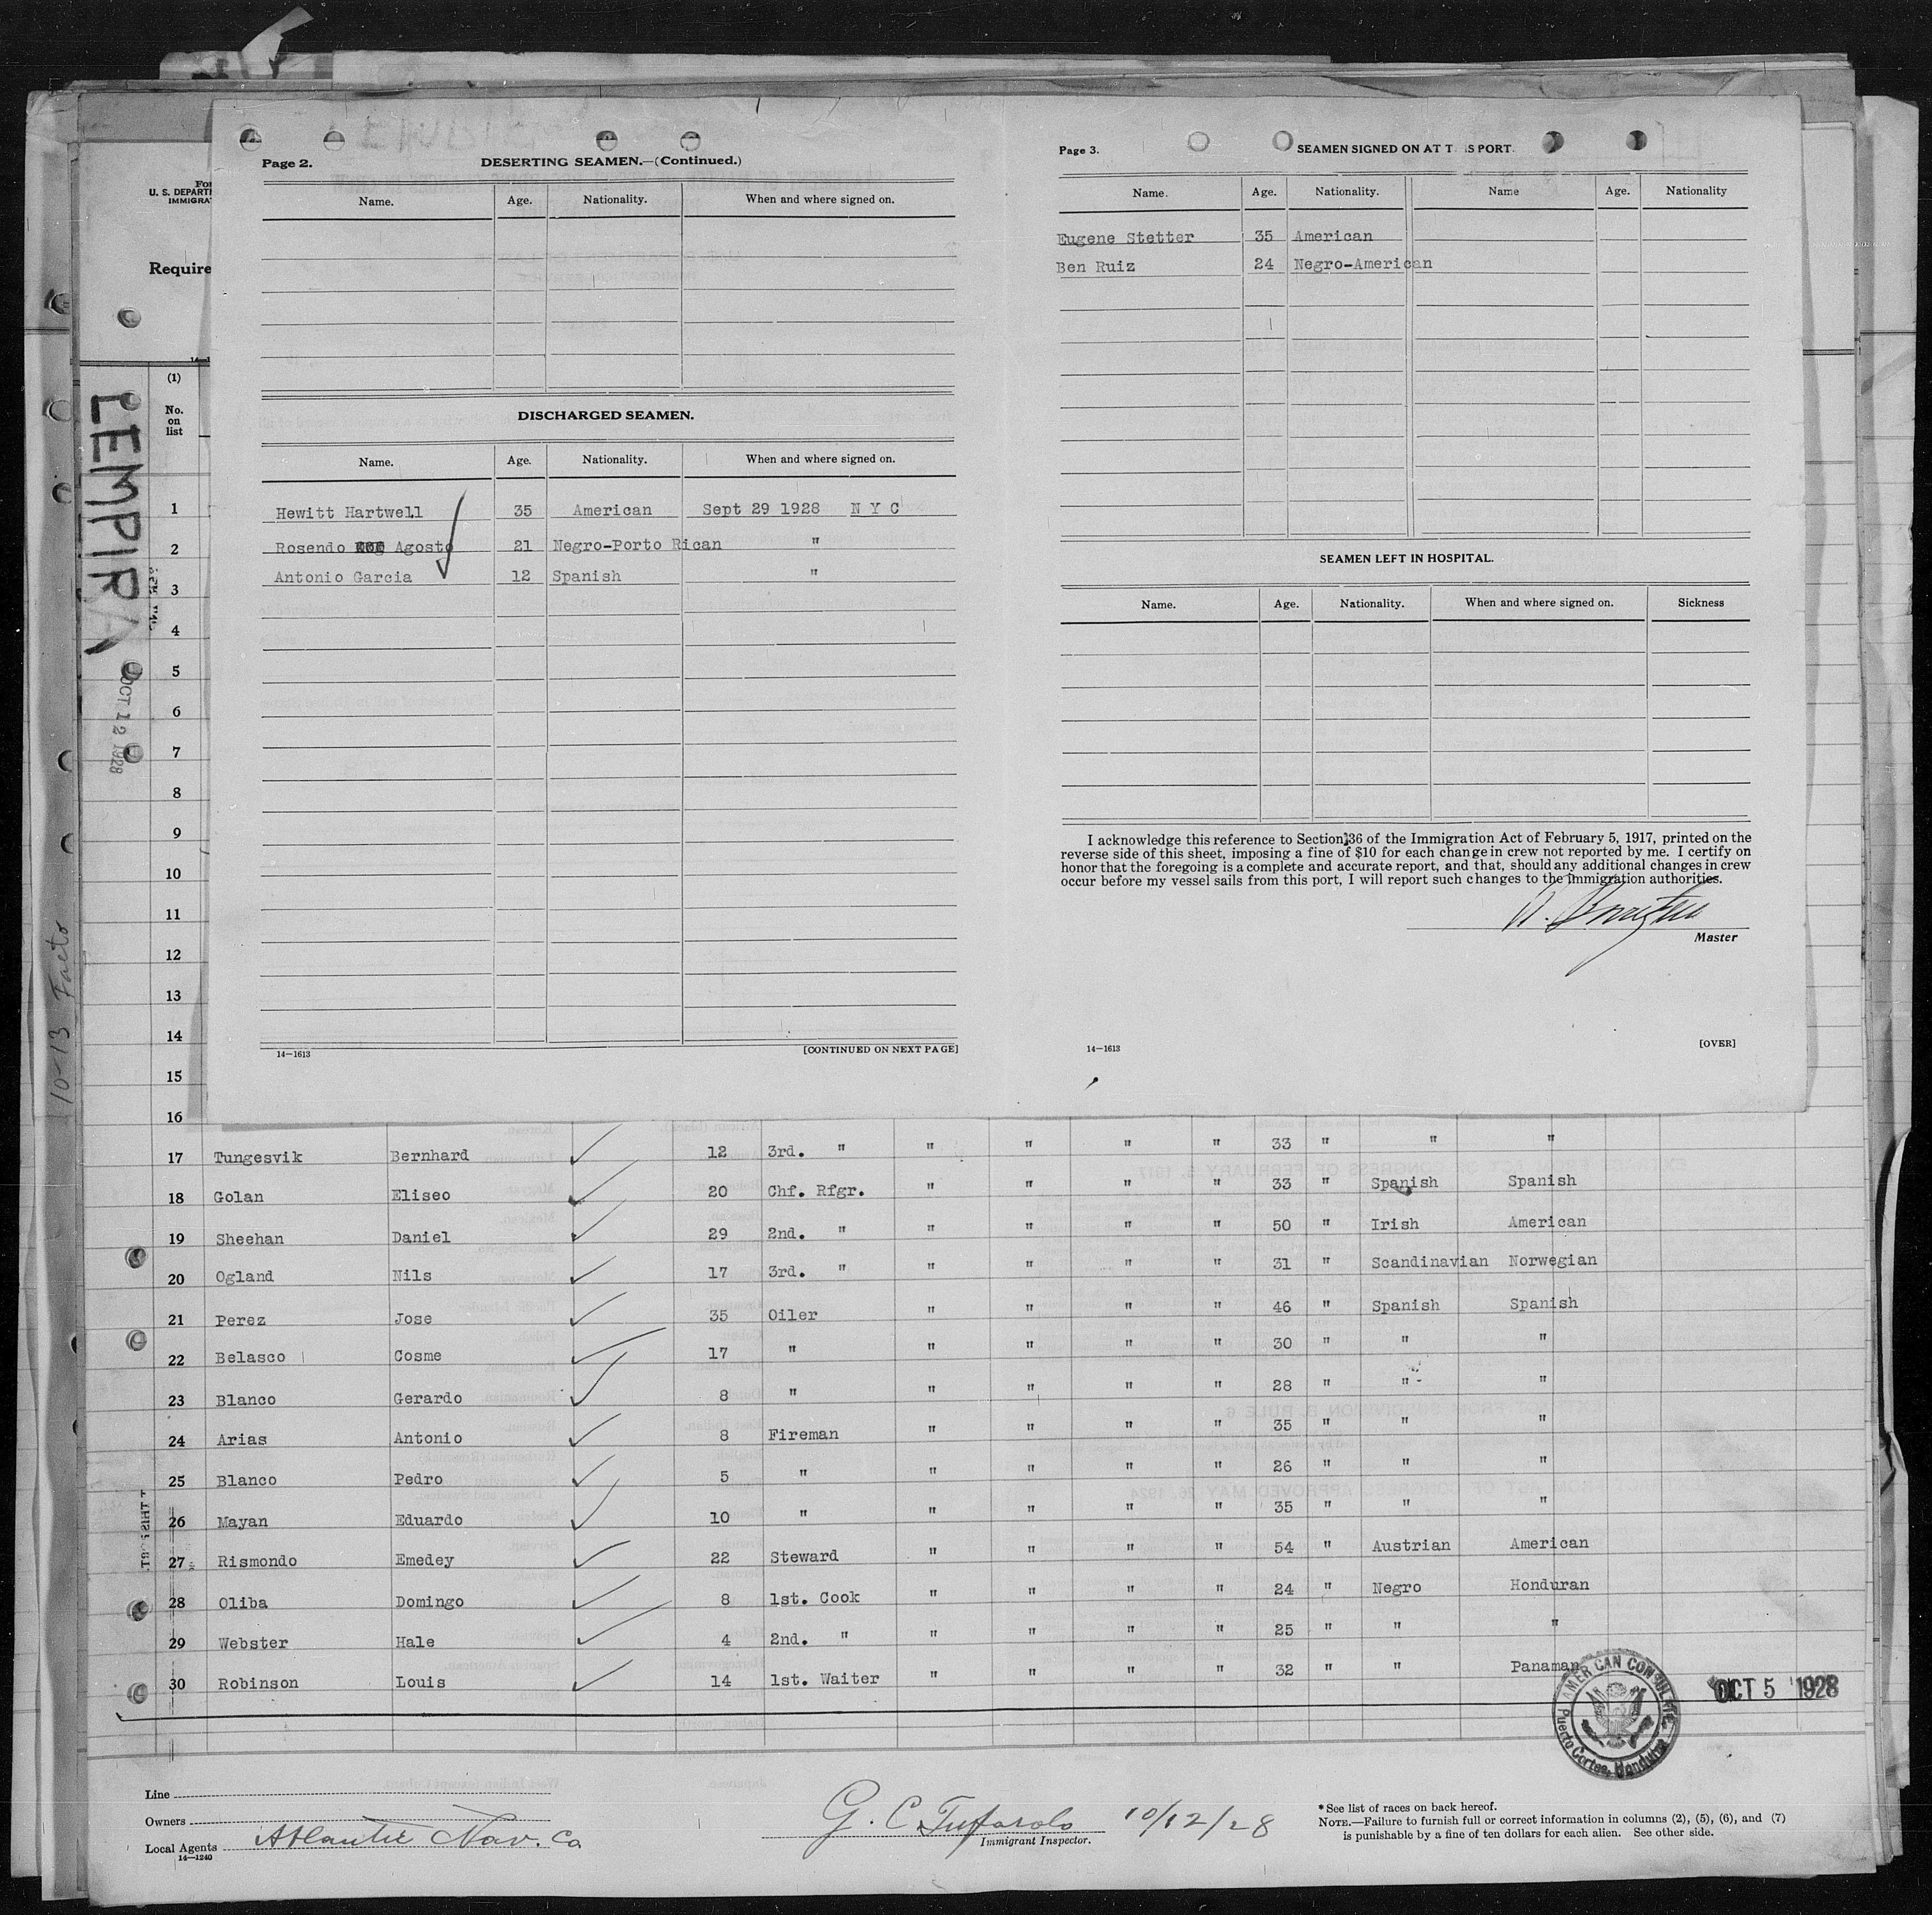 For
U. S. DEPARTM
IMMIGRA
Require
LEMPIRA
OCT 12 1928
10-13 Facto
(1)
No.
on
list
Page 2.
DESERTING SEAMEN.—(Continued.)
Name. Age. Nationality. When and where signed on.
DISCHARGED SEAMEN.
Name. Age. Nationality. When and where signed on.
Hewitt Hartwell 35 American Sept 29 1928 N Y C
Rosendo Agosto 21 Negro-Porto Rican "
Antonio Garcia 12 Spanish "
14—1613
[CONTINUED ON NEXT PAGE]
Page 3.
SEAMEN SIGNED ON AT T IS PORT.
Name. Age. Nationality. Name Age. Nationality
Eugene Stetter 35 American
Ben Ruiz 24 Negro-American
SEAMEN LEFT IN HOSPITAL.
Name. Age. Nationality. When and where signed on. Sickness
I acknowledge this reference to Section 36 of the Immigration Act of February 5, 1917, printed on the
reverse side of this sheet, imposing a fine of $10 for each change in crew not reported by me. I certify on
honor that the foregoing is a complete and accurate report, and that, should any additional changes in crew
occur before my vessel sails from this port, I will report such changes to the immigration authorities.
Master
14—1613
[OVER]
1
2
3
4
5
6
7
8
9
10
11
12
13
14
15
16
17 Tungesvik Bernhard 12 3rd. " " " " " 33 " " "
18 Golan Eliseo 20 Chf. Rfgr. " " " " 33 " Spanish Spanish
19 Sheehan Daniel 29 2nd. " " " " " 50 " Irish American
20 Ogland Nils 17 3rd. " " " " " 31 " Scandinavian Norwegian
21 Perez Jose 35 Oiler " " " " 46 " Spanish Spanish
22 Belasco Cosme 17 " " " " " 30 " " "
23 Blanco Gerardo 8 " " " " " 28 " " "
24 Arias Antonio 8 Fireman " " " " 35 " " "
25 Blanco Pedro 5 " " " " " 26 " " "
26 Mayan Eduardo 10 " " " " " 35 " " "
27 Rismondo Emedey 22 Steward " " " " 54 " Austrian American
28 Oliba Domingo 8 1st. Cook " " " " 24 " Negro Honduran
29 Webster Hale 4 2nd. " " " " " 25 " " "
30 Robinson Louis 14 1st. Waiter " " " " 32 " " Panaman
AMERICAN CONSULATE
Puerto Cortes, Honduras
OCT 5 1928
Line
Owners
Local Agents Atlantic Nav. Co
14—1240
G. C. Tufarolo 10/12/28
Immigrant Inspector.
*See list of races on back hereof.
NOTE.—Failure to furnish full or correct information in columns (2), (5), (6), and (7)
is punishable by a fine of ten dollars for each alien. See other side.